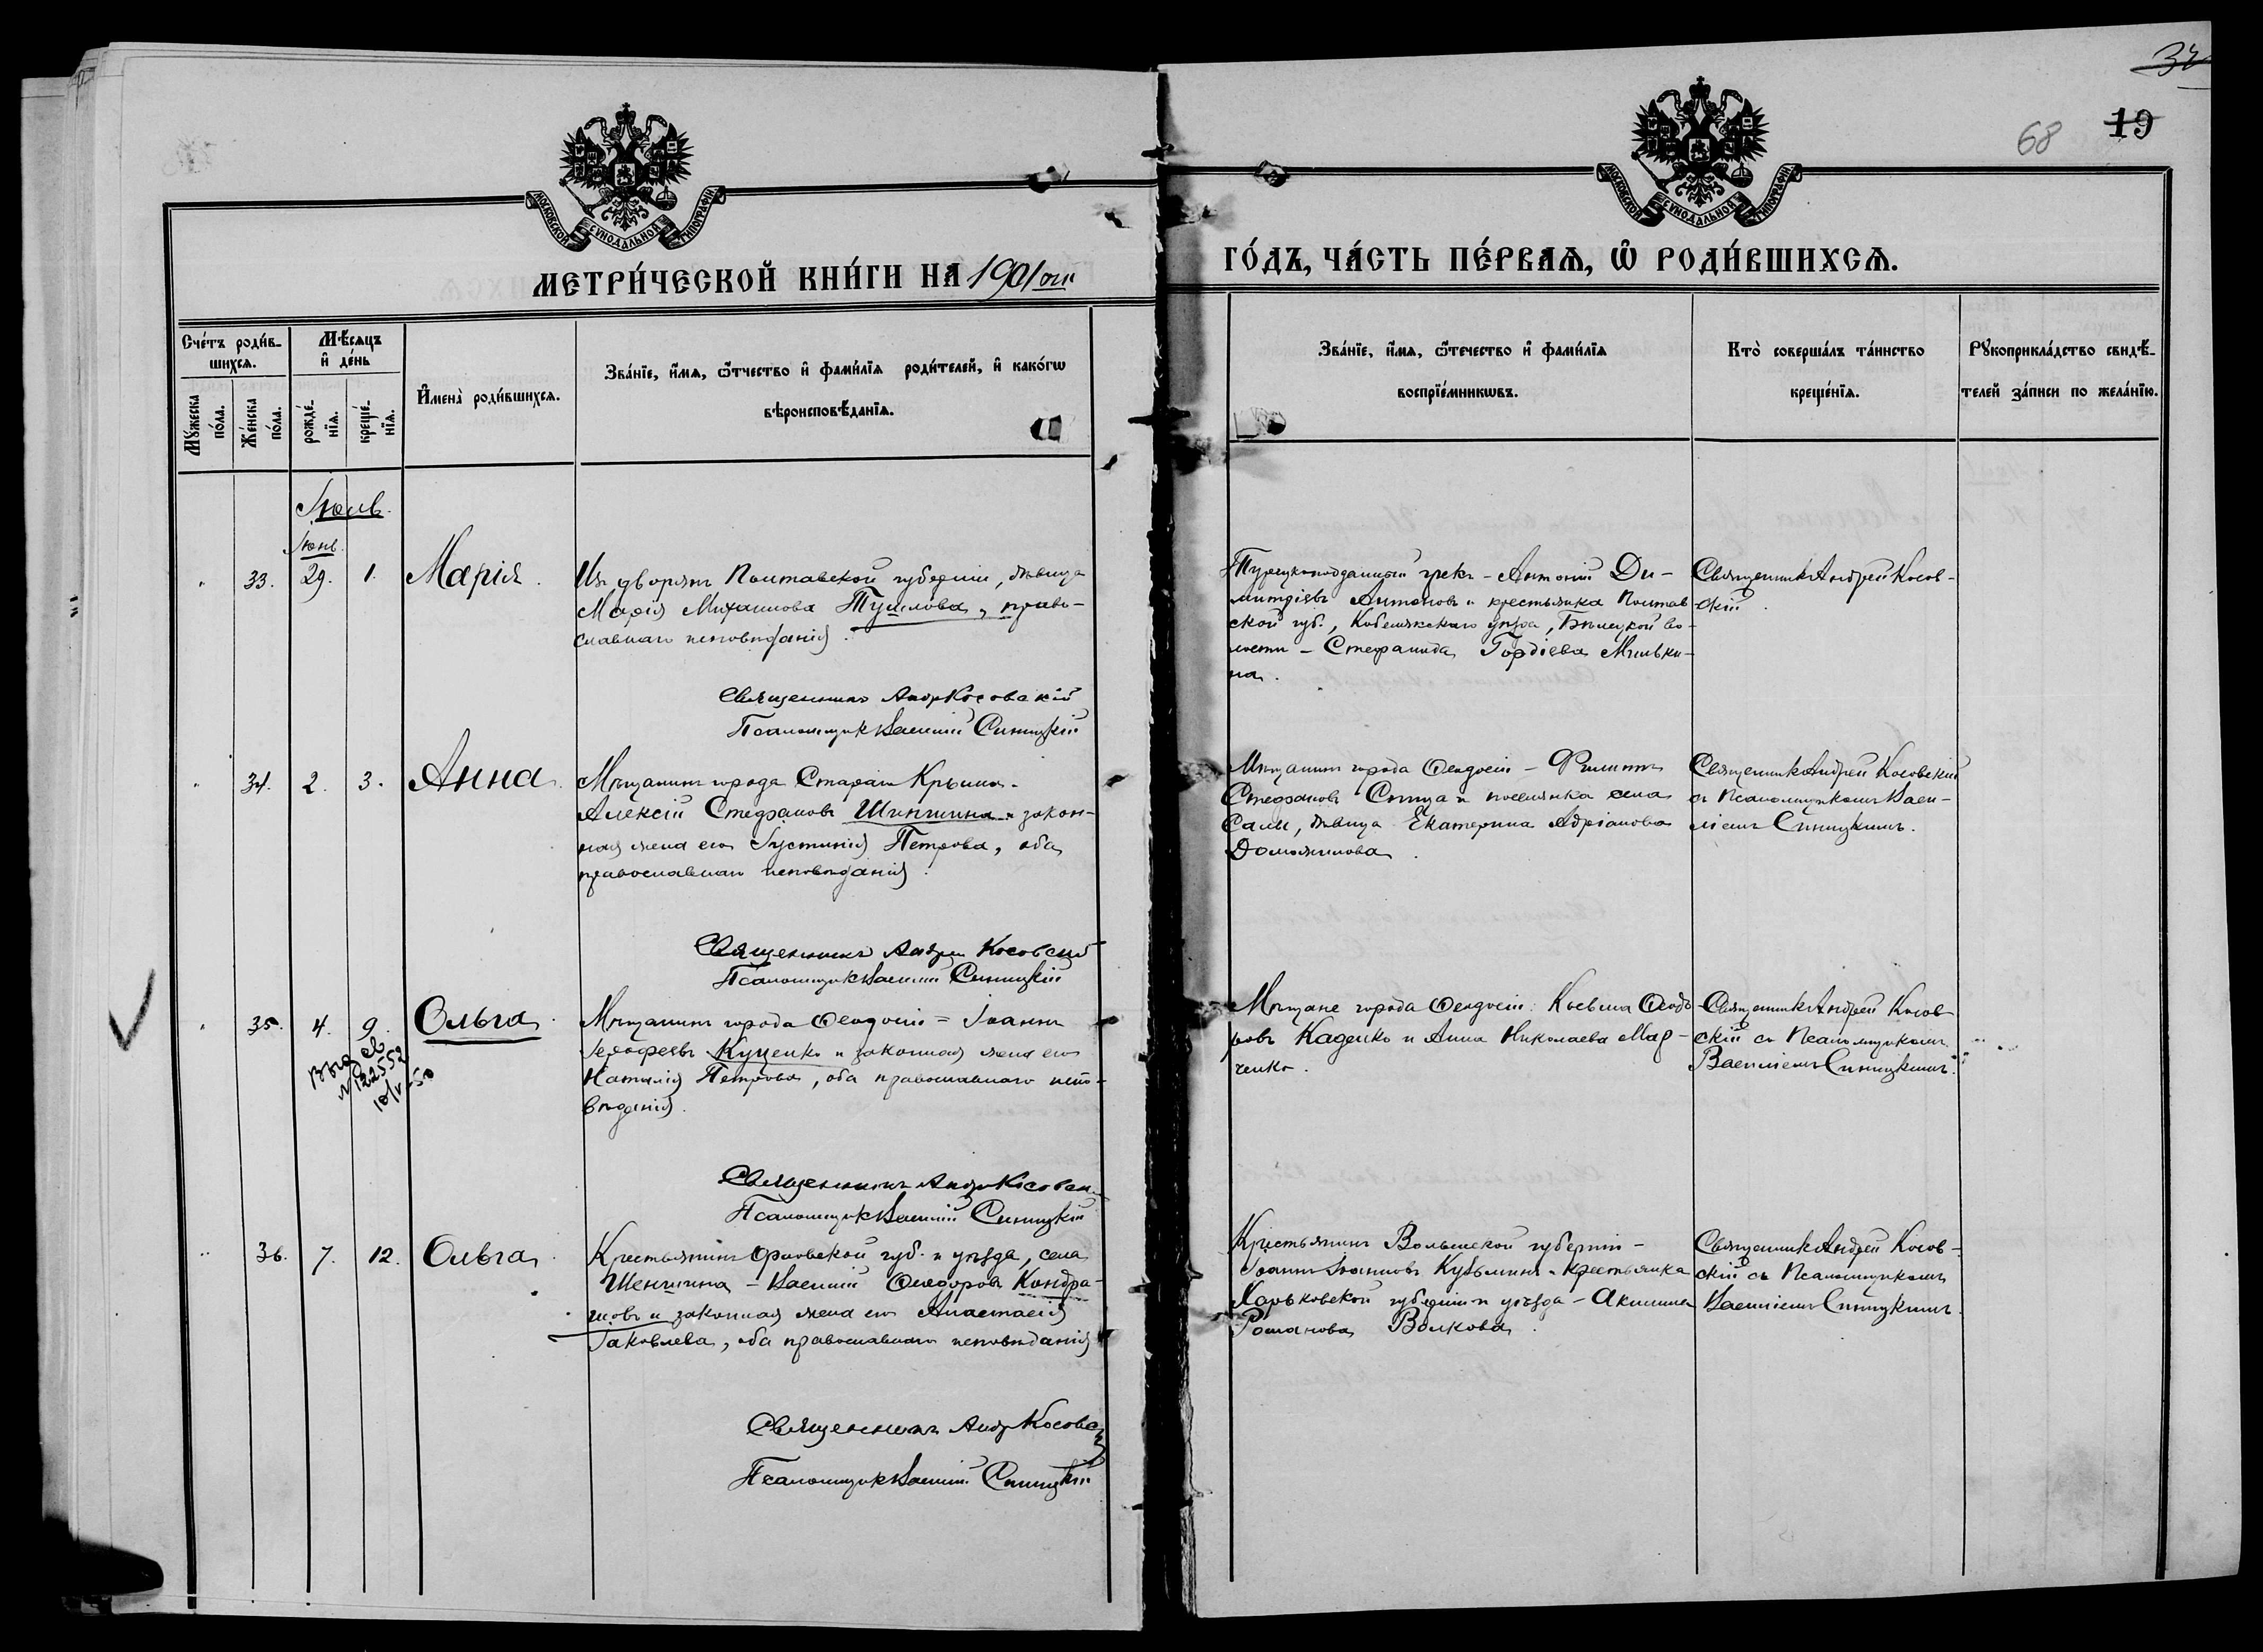 32
68 19
МОСКОВСКОЙ СѴНОДАЛЬНОЙ ТИПОГРАФІИ
МОСКОВСКОЙ СѴНОДАЛЬНОЙ ТИПОГРАФІИ
МЕТРИ́ЧЕСКОЙ КНИ́ГИ НА 1901ый
ГО́ДЪ, ЧА́СТЬ ПЕ́РВАѦ, Ѽ РОДИ́ВШИХСѦ.
Сче́тъ роди́в-
шихсѧ.
Мꙋ́жеска
по́ла.
Же́нска
по́ла.
Мѣ́сѧцъ
и҆ де́нь
рожде́-
нїѧ.
креще́-
нїѧ.
И҆мена̀ роди́вшихсѧ.
Зва́нїе, и҆́мѧ, ѻ҆́тчество и҆ фами́лїѧ роди́телей, и҆ како́гѡ
вѣроисповѣ́данїѧ.
Зва́нїе, и҆́мѧ, ѻ҆те́чество и҆ фами́лїѧ
воспрїе́мникѡвъ.
Кто̀ соверша́лъ та́инство
креще́нїѧ.
Рꙋкоприкла́дство свидѣ́-
телей за́писи по жела́нїю.
Іюль.
Іюнь.
" 33. 29. 1. Марія.
Изъ дворянъ Полтавской губерніи, дѣвица
Марія Михаилова Туилова, право-
славнаго исповѣданія.
Священникъ Андр Косовскій
Псаломщикъ Василій Синицкій
Турецкоподданный грекъ - Антоній Ди-
митріевъ Антоновъ и крестьянка Полтав-
ской губ., Кобелякскаго уѣзда, Бѣлецкой во-
лости - Стефанида Гордіева Милька-
на.
Священникъ Андрей Косов-
скій.
" 34. 2. 3. Анна.
Мѣщанинъ города Старый Крымъ -
Алексій Стефановъ Шиншина и закон-
ная жена его Іустинія Петрова, оба
православнаго исповѣданія.
Священникъ Андрей Косовскій
Псаломщикъ Василій Синицкій
Мѣщанинъ города Ѳеодосіи - Филиппъ
Стефановъ Спица и поселянка села
Салы, дѣвица Екатерина Адріанова
Домоячилова.
Священникъ Андрей Косовскій
съ Псаломщикомъ Васи-
ліемъ Синицкимъ.
" 35. 4. 9. Ольга.
Выд св
№ 122552
10/V-50
Мѣщанинъ города Ѳеодосіи = Іоаннъ
Іерофеевъ Куценко и законная жена его
Наталія Петрова, оба православнаго испо-
вѣданія.
Священникъ Андр Косовскій
Псаломщикъ Василій Синицкій
Мѣщане города Ѳеодосіи: Косьма Ѳеодо-
ровъ Каденко и Анна Николаева Мар-
ченко.
Священникъ Андрей Косов-
скій съ Псаломщикомъ
Василіемъ Синицкимъ.
" 36. 7. 12. Ольга
Крестьянинъ Орловской губ. и уѣзда, села
Шеншина - Василій Ѳеодоровъ Кондра-
шовъ и законная жена его Анастасія
Іаковлева, оба православнаго исповѣданія
Священникъ Андр Косовскій
Псаломщикъ Василій Синицкій
Крестьянинъ Волынской губерніи -
Іоаннъ Іоанновъ Кузьминъ и крестьянка
Харьковской губерніи и уѣзда - Акилина
Романова Волкова.
Священникъ Андрей Косов-
скій съ Псаломщикомъ
Василіемъ Синицкимъ.